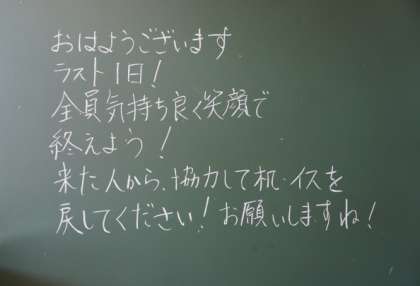 おはようございます
ラスト1日!
全員気持ち良く笑顔で
終えよう!
来た人から、協力して机・イスを
戻してください!お願いしますね!